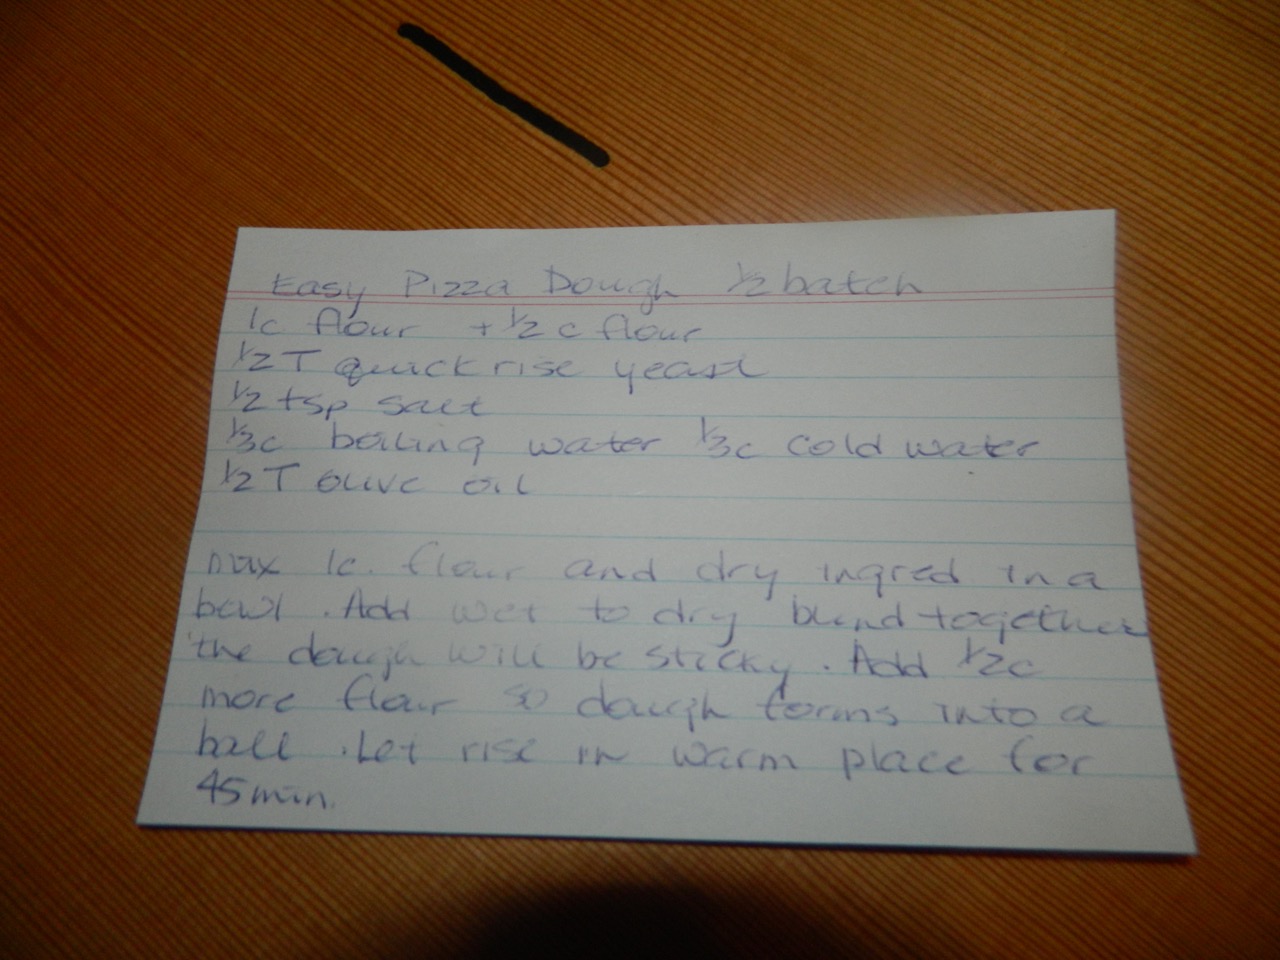 Easy Pizza Dough ½ batch
1c flour + ½ c flour
½ T quick rise yeast
½ tsp salt
⅓c boiling water ⅓c cold water
½ T olive oil
mix 1c. flour and dry ingred in a
bowl. Add wet to dry blend together
the dough will be sticky. Add ½c
more flour so dough forms into a
ball. Let rise in warm place for
45 min.